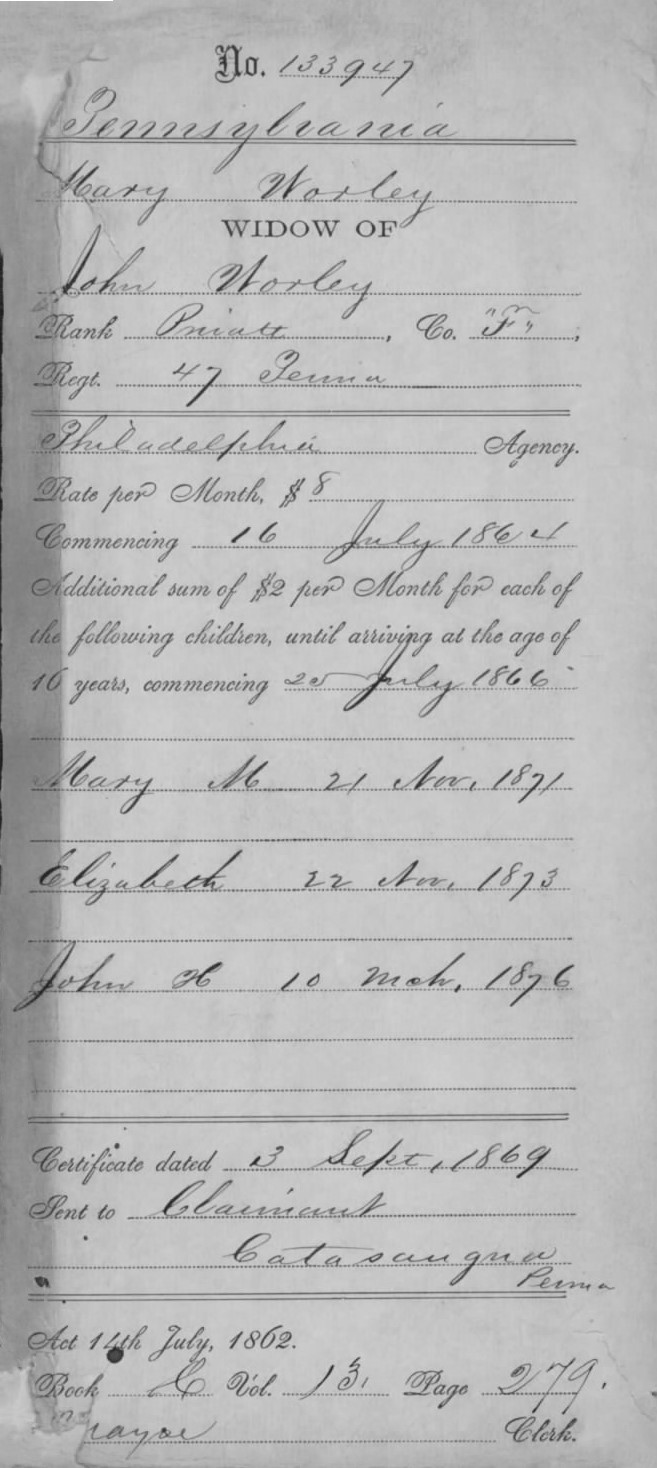 No. 133947
Pennsylvania
Mary Worley
WIDOW OF
John Worley
Rank Private, Co. "F",
Regt. 47 Penna
Philadelphia Agency.
Rate per Month, $8
Commencing 16 July 1864
Additional sum of $2 per Month for each of
the following children, until arriving at the age of
16 years, commencing 25 July 1866
Mary M 21 Nov. 1871
Elizabeth 22 Nov. 1873
John H 10 Mch. 1876
Certificate dated 3 Sept, 1869
Sent to Claimant
Catasauqua
Penna
Act 14th July, 1862.
Book Vol. 13. Page 279.
Clerk.